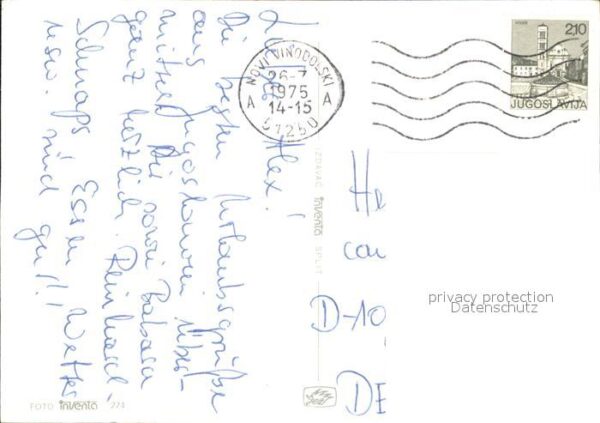 Lieber Alex!
Die besten Urlaubsgrüße
aus Jugoslawien über-
mittelt Dir sowie Babara
ganz herzlich. Reinhard.
Schnaps, Essen, Wetter
usw. sind gut!!
NOVI VINODOLSKI
26-7
1975
14-15
A A
51250
2,10
HVAR
JUGOSLAVIJA
D-10
DE
privacy protection
Datenschutz
IZDAVAČ inventa SPLIT
FOTO inventa 274